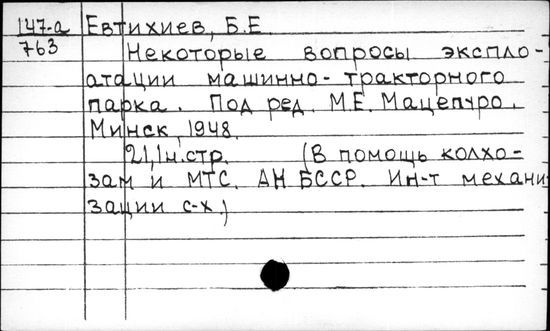 147-а Евтихиев, Б.Е.
763
Некоторые вопросы экспло-
атации машинно-тракторного
парка. Под ред. М.Е. Мацепуро.
Минск, 1948.
21,1н.стр. (В помощь колхо-
зам и МТС. АН БССР. Ин-т механи
зации с-х.)